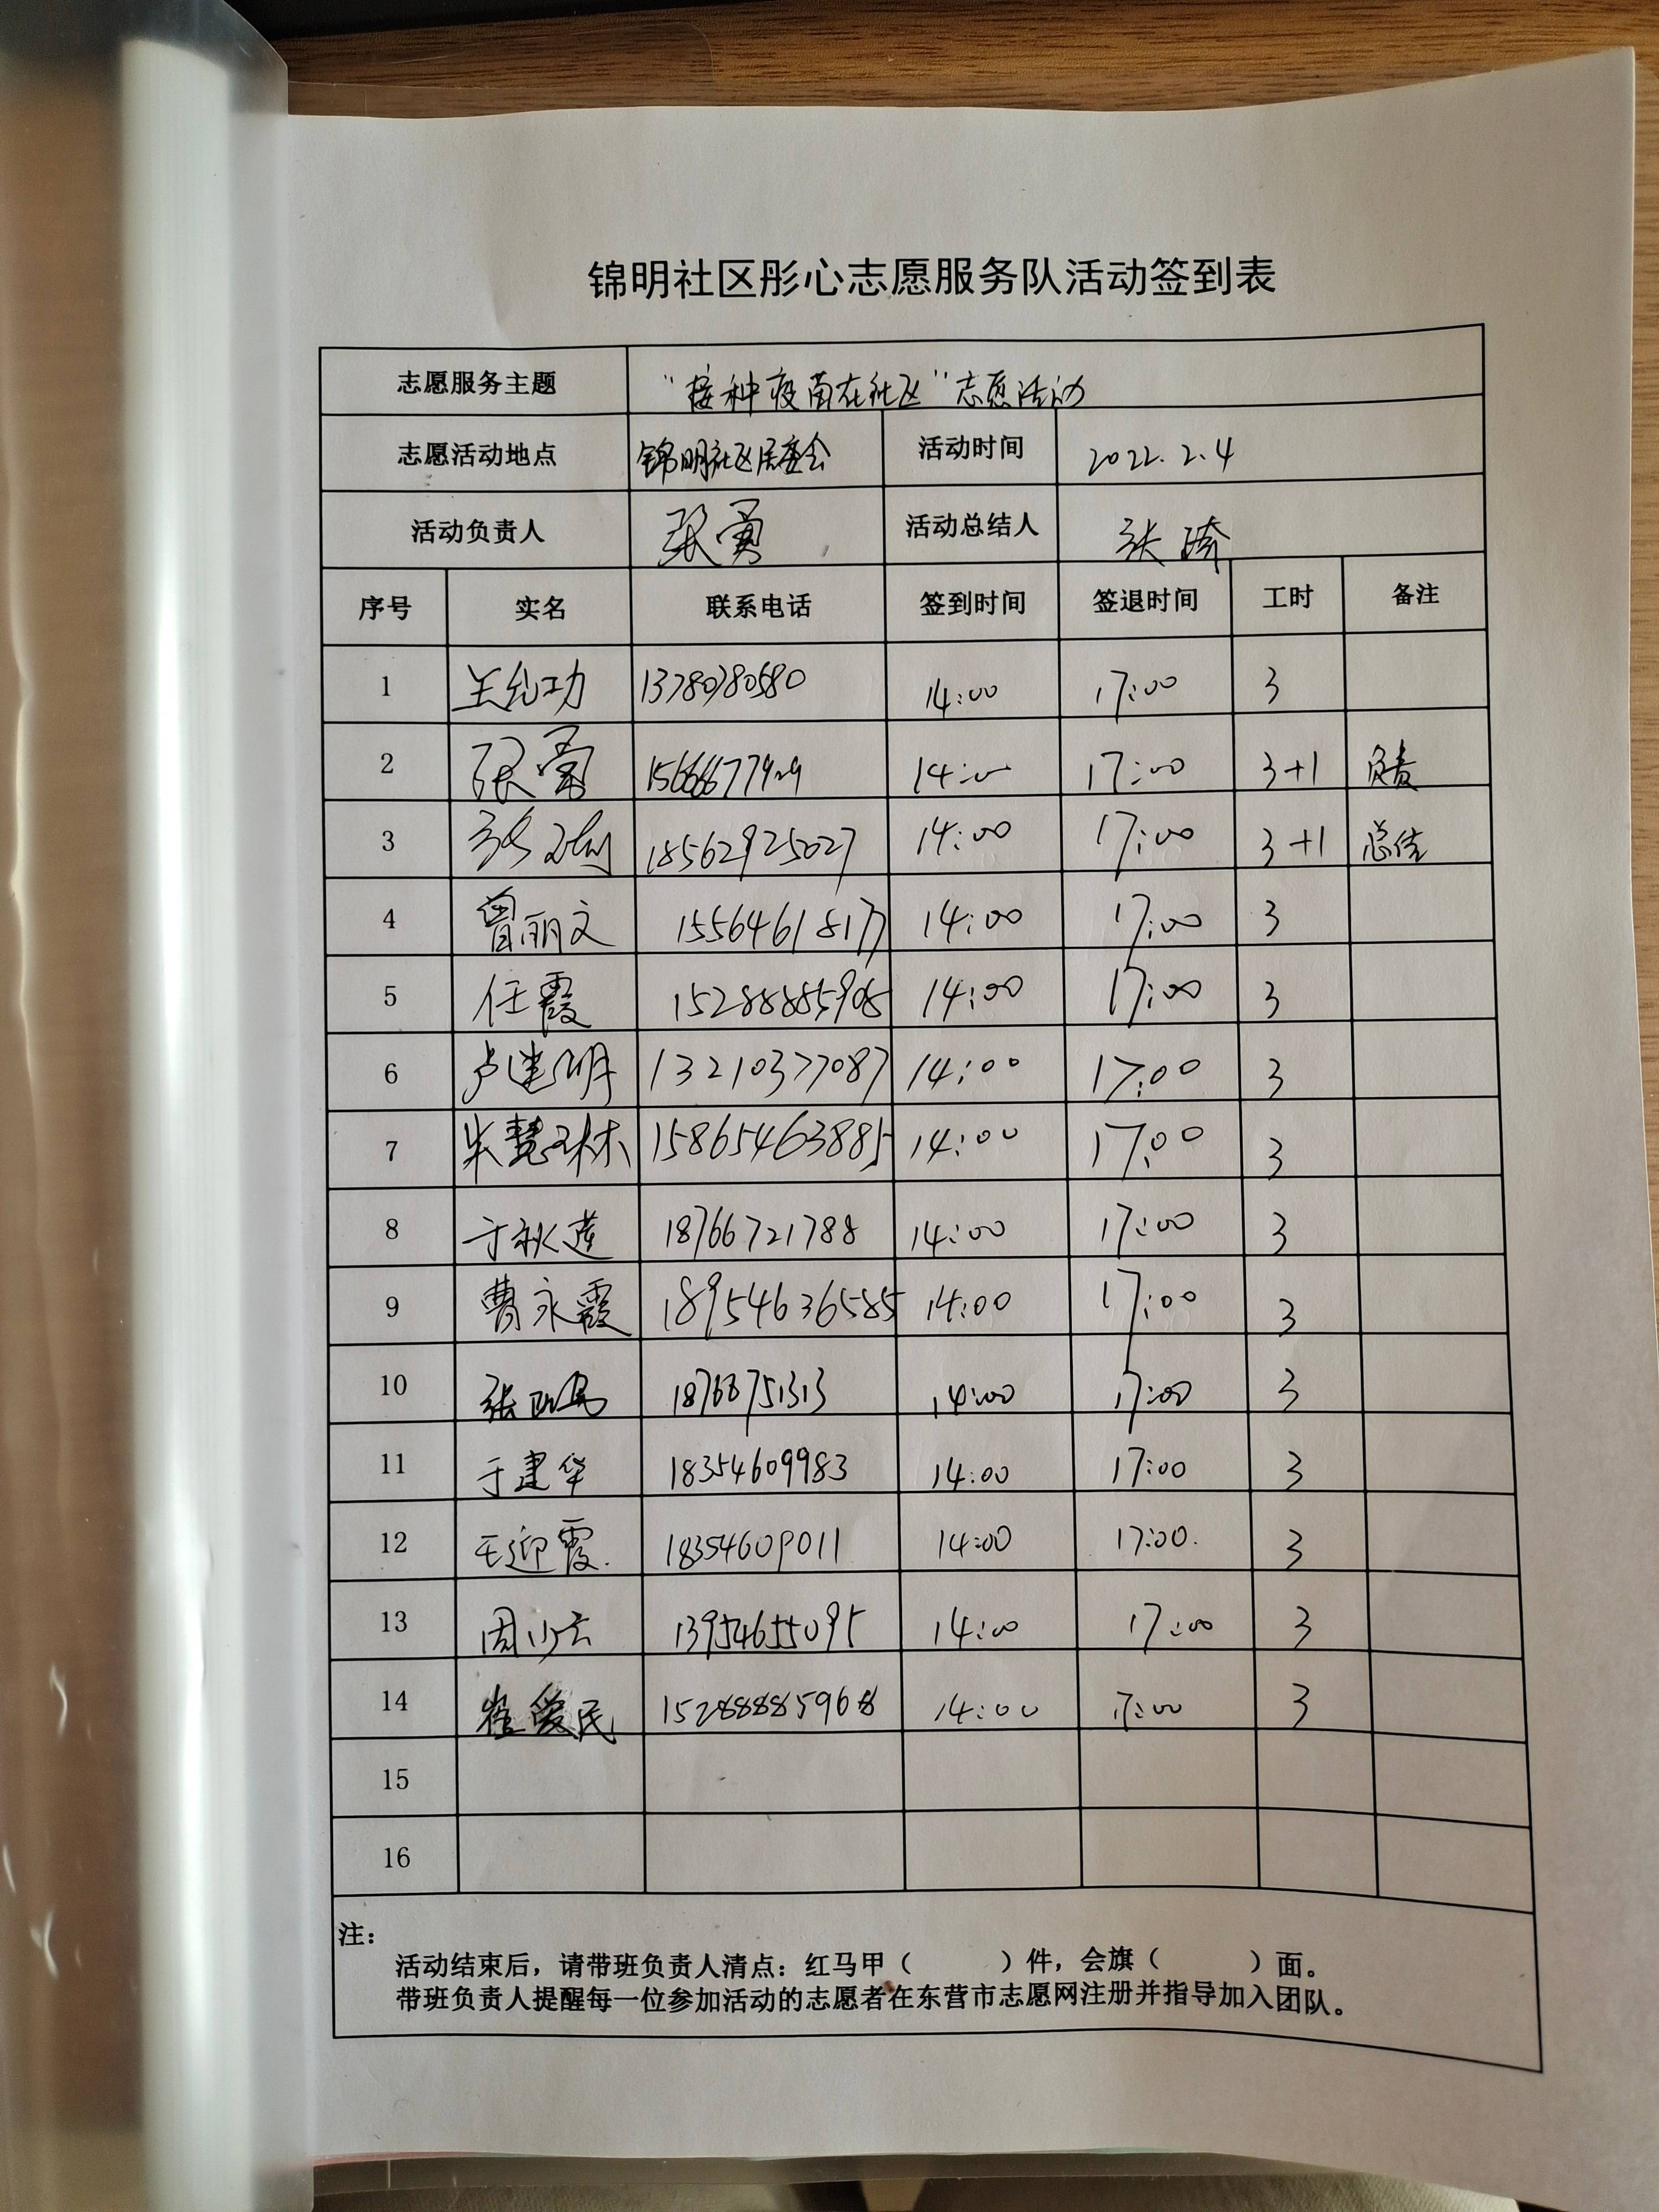 锦明社区彤心志愿服务队活动签到表
志愿服务主题 “接种疫苗在社区”志愿活动
志愿活动地点 锦明社区居委会 活动时间 2022.2.4
活动负责人 张勇 活动总结人 张琦
序号 实名 联系电话 签到时间 签退时间 工时 备注
1 13780780580 14:00 17:00 3
2 张勇 14:00 17:00 3+1 负责
3 18562925027 14:00 17:00 3+1 总结
4 曾丽文 15564618177 14:00 17:00 3
5 任霞 15288885908 14:00 17:00 3
6 卢建明 13210377087 14:00 17:00 3
7 朱慧琳 15865463885 14:00 17:00 3
8 于秋莲 18766721788 14:00 17:00 3
9 曹永霞 18954636585 14:00 17:00 3
10 18766751313 14:00 17:00 3
11 于建华 18354609983 14:00 17:00 3
12 王迎霞. 18354609011 14:00 17:00. 3
13 周少云 13954655095 14:00 17:00 3
14 崔爱民 15288885968 14:00 17:00 3
15
16
注：
活动结束后，请带班负责人清点：红马甲（ ）件，会旗（ ）面。
带班负责人提醒每一位参加活动的志愿者在东营市志愿网注册并指导加入团队。